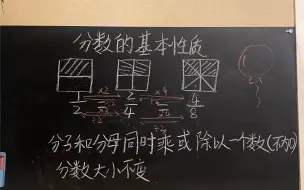 分数的基本性质
×2 ×2
1/2 2/4 4/8
÷2
分子和分母同时乘或除以一个数(不为0)
分数大小不变